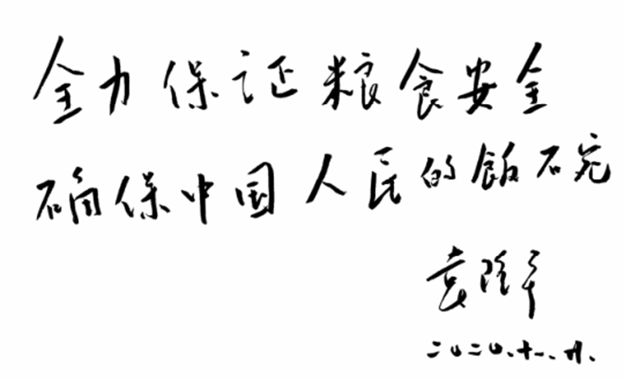 全力保证粮食安全
确保中国人民的饭碗
袁隆平
二〇二〇.十一.九.